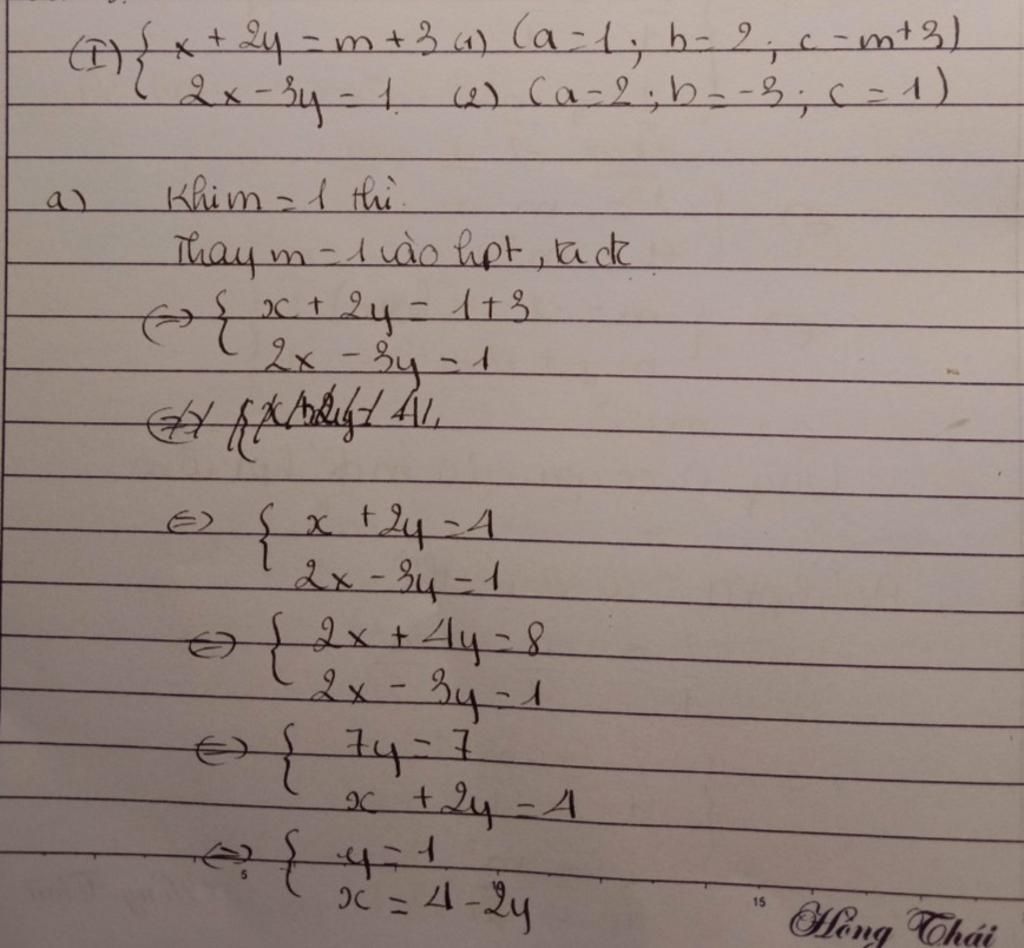 (I) { x + 2y = m + 3 (1) (a = 1 ; b = 2 ; c = m + 3)
2x - 3y = 1 (2) (a = 2 ; b = -3 ; c = 1)
a) Khi m = 1 thì.
Thay m = 1 vào hpt, ta dc
<=> { x + 2y = 1 + 3
2x - 3y = 1
<=> { x + 2y = 4
2x - 3y = 1
<=> { 2x + 4y = 8
2x - 3y = 1
<=> { 7y = 7
x + 2y = 4
<=> { y = 1
x = 4 - 2y
5 15
Hồng Thái